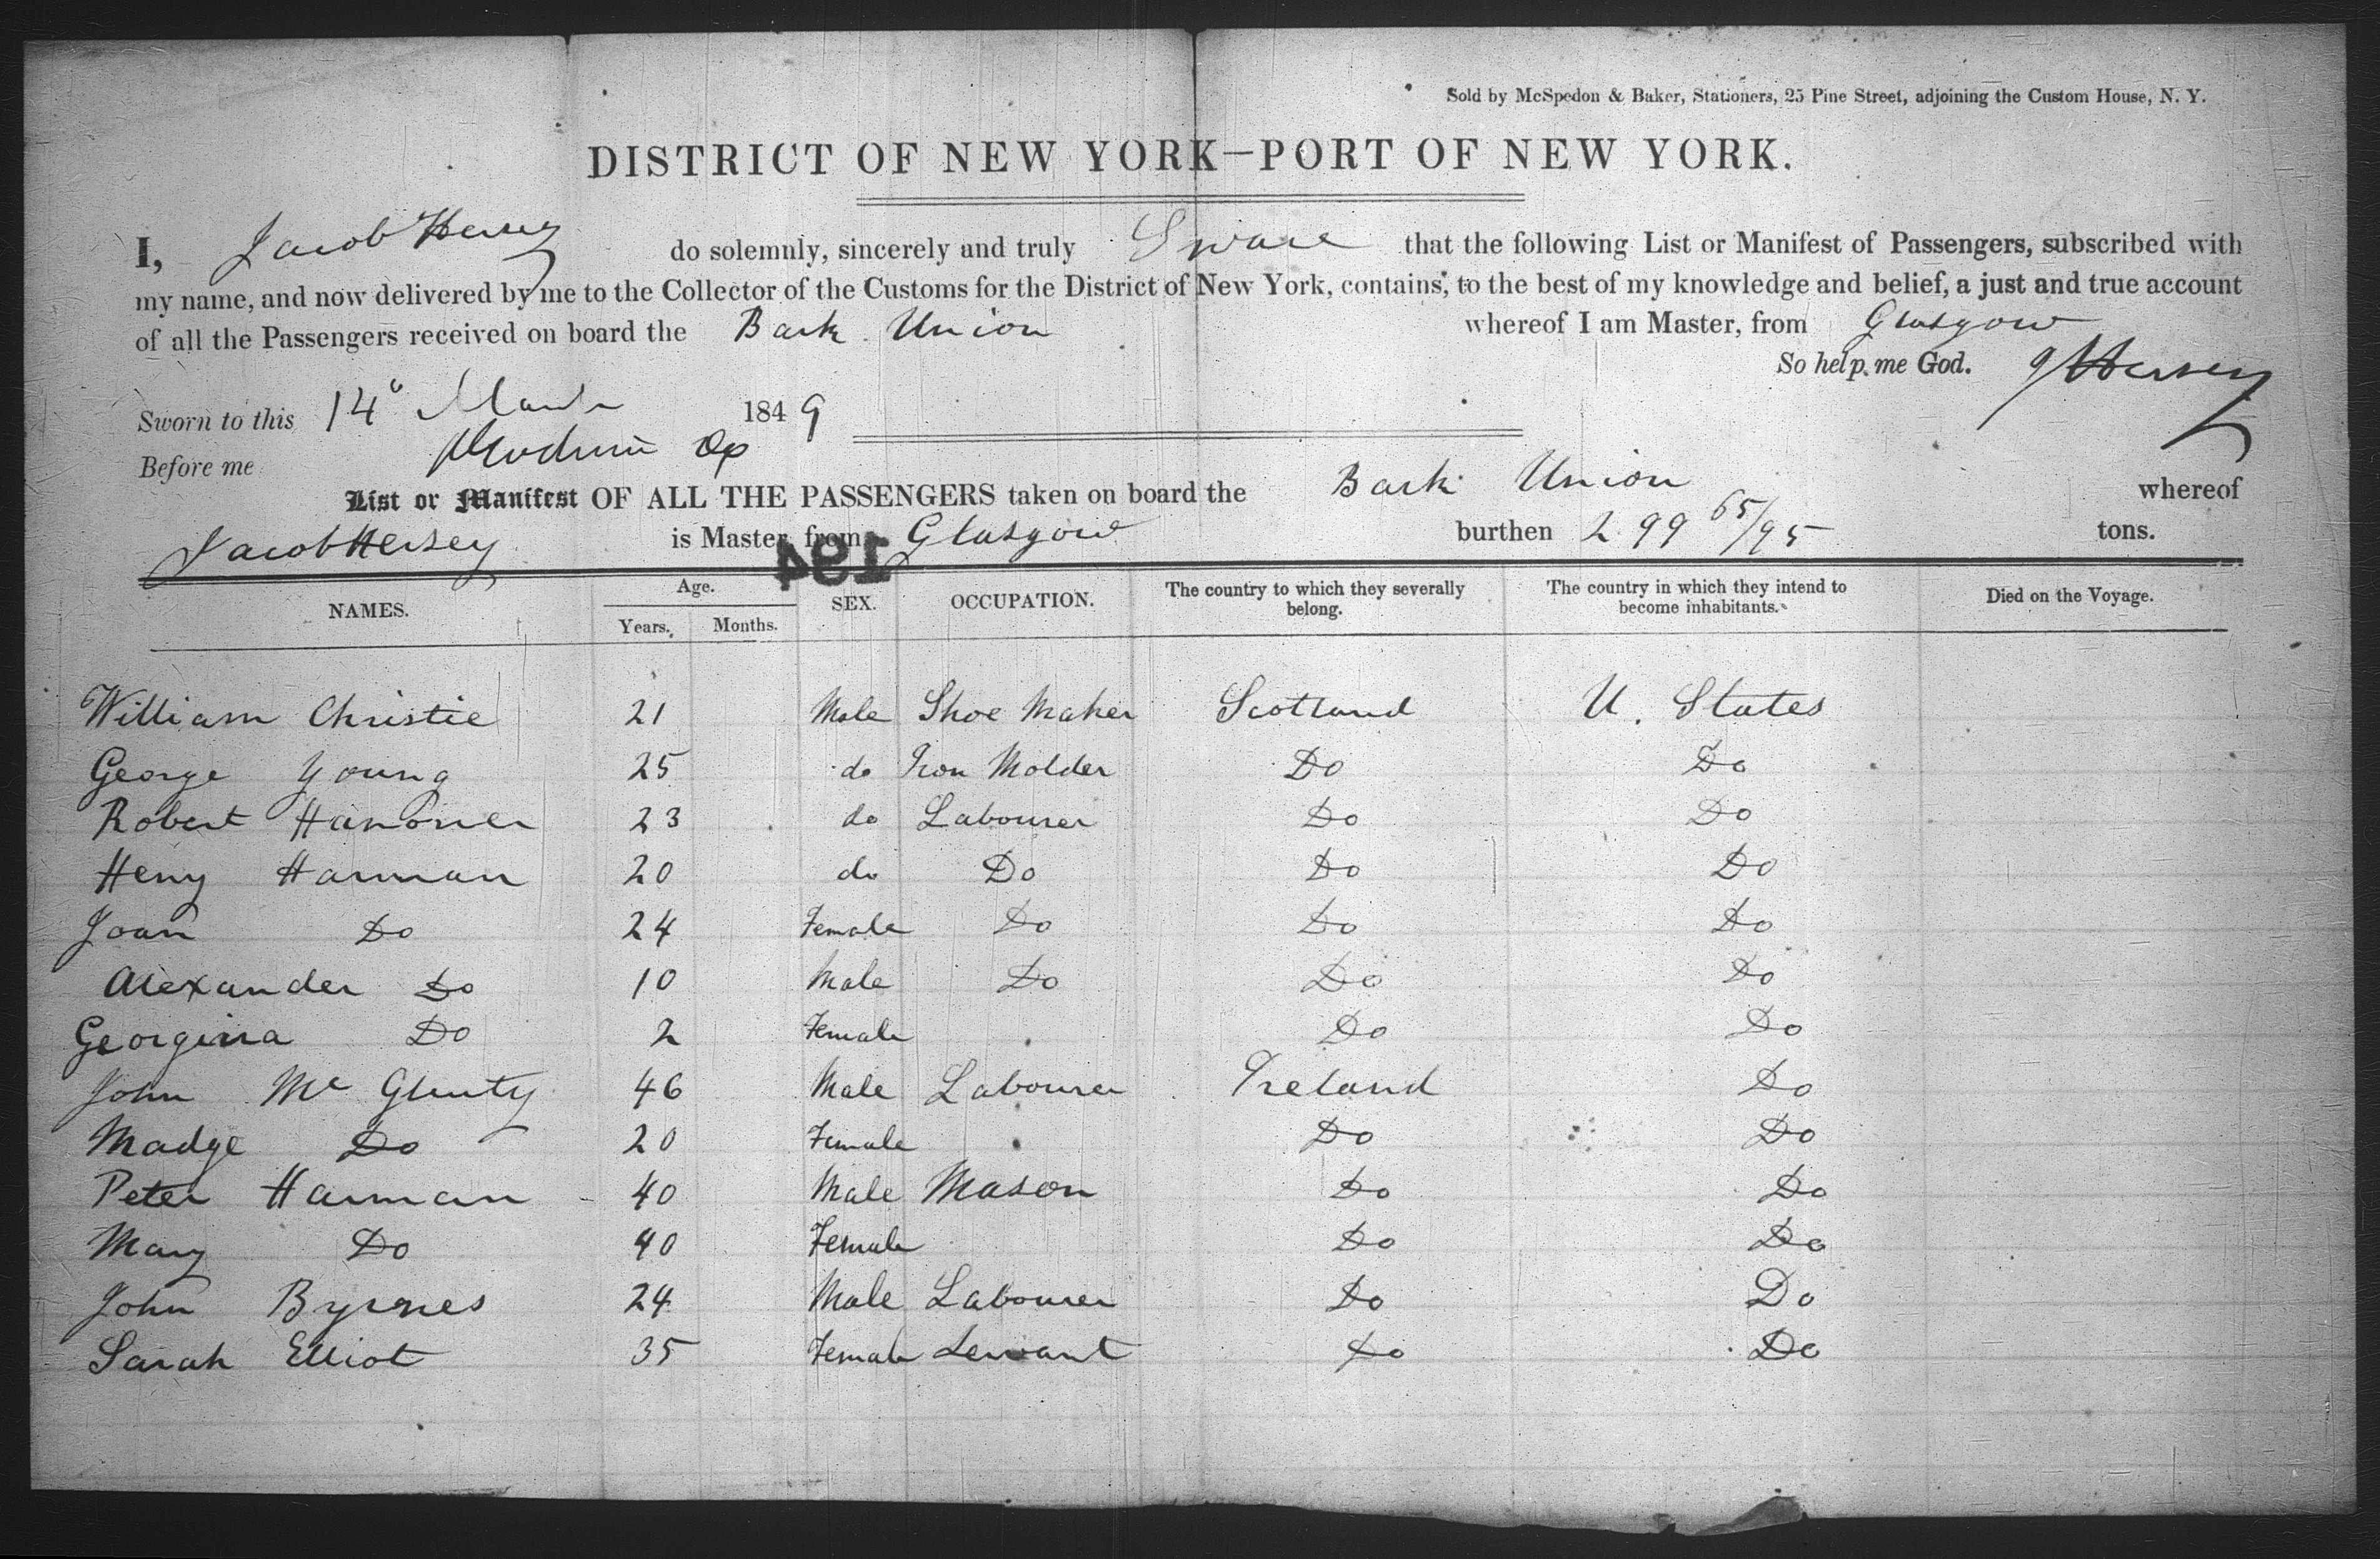 Sold by McSpedon & Baker, Stationers, 25 Pine Street, adjoining the Custom House, N. Y.
DISTRICT OF NEW YORK—PORT OF NEW YORK.
I, Jacob Hersey do solemnly, sincerely and truly Sware that the following List or Manifest of Passengers, subscribed with
my name, and now delivered by me to the Collector of the Customs for the District of New York, contains, to the best of my knowledge and belief, a just and true account
of all the Passengers received on board the Bark Union whereof I am Master, from Glasgow
So help me God. J Hersey
Sworn to this 14" March 1849
Before me
List or Manifest OF ALL THE PASSENGERS taken on board the Bark Union whereof
Jacob Hersey is Master, from Glasgow burthen 299 65/95 tons.
194
NAMES. Age. Years. Months. SEX. OCCUPATION. The country to which they severally belong. The country in which they intend to become inhabitants. Died on the Voyage.
William Christie 21 Male Shoe Maker Scotland U. States
George Young 25 do Iron Molder Do Do
Robert 23 do Labourer Do Do
Heny Harman 20 do Do Do Do
Joan Do 24 Female Do Do Do
Alexander Do 10 Male Do Do Do
Georgina Do 2 Female Do Do
John Mc Glenty 46 Male Labourer Ireland Do
Madge Do 20 Female Do Do
Peter Harman 40 Male Mason Do Do
Mary Do 40 Female Do Do
John Byrnes 24 Male Labourer Do Do
Sarah Elliot 35 Female Servant Do Do